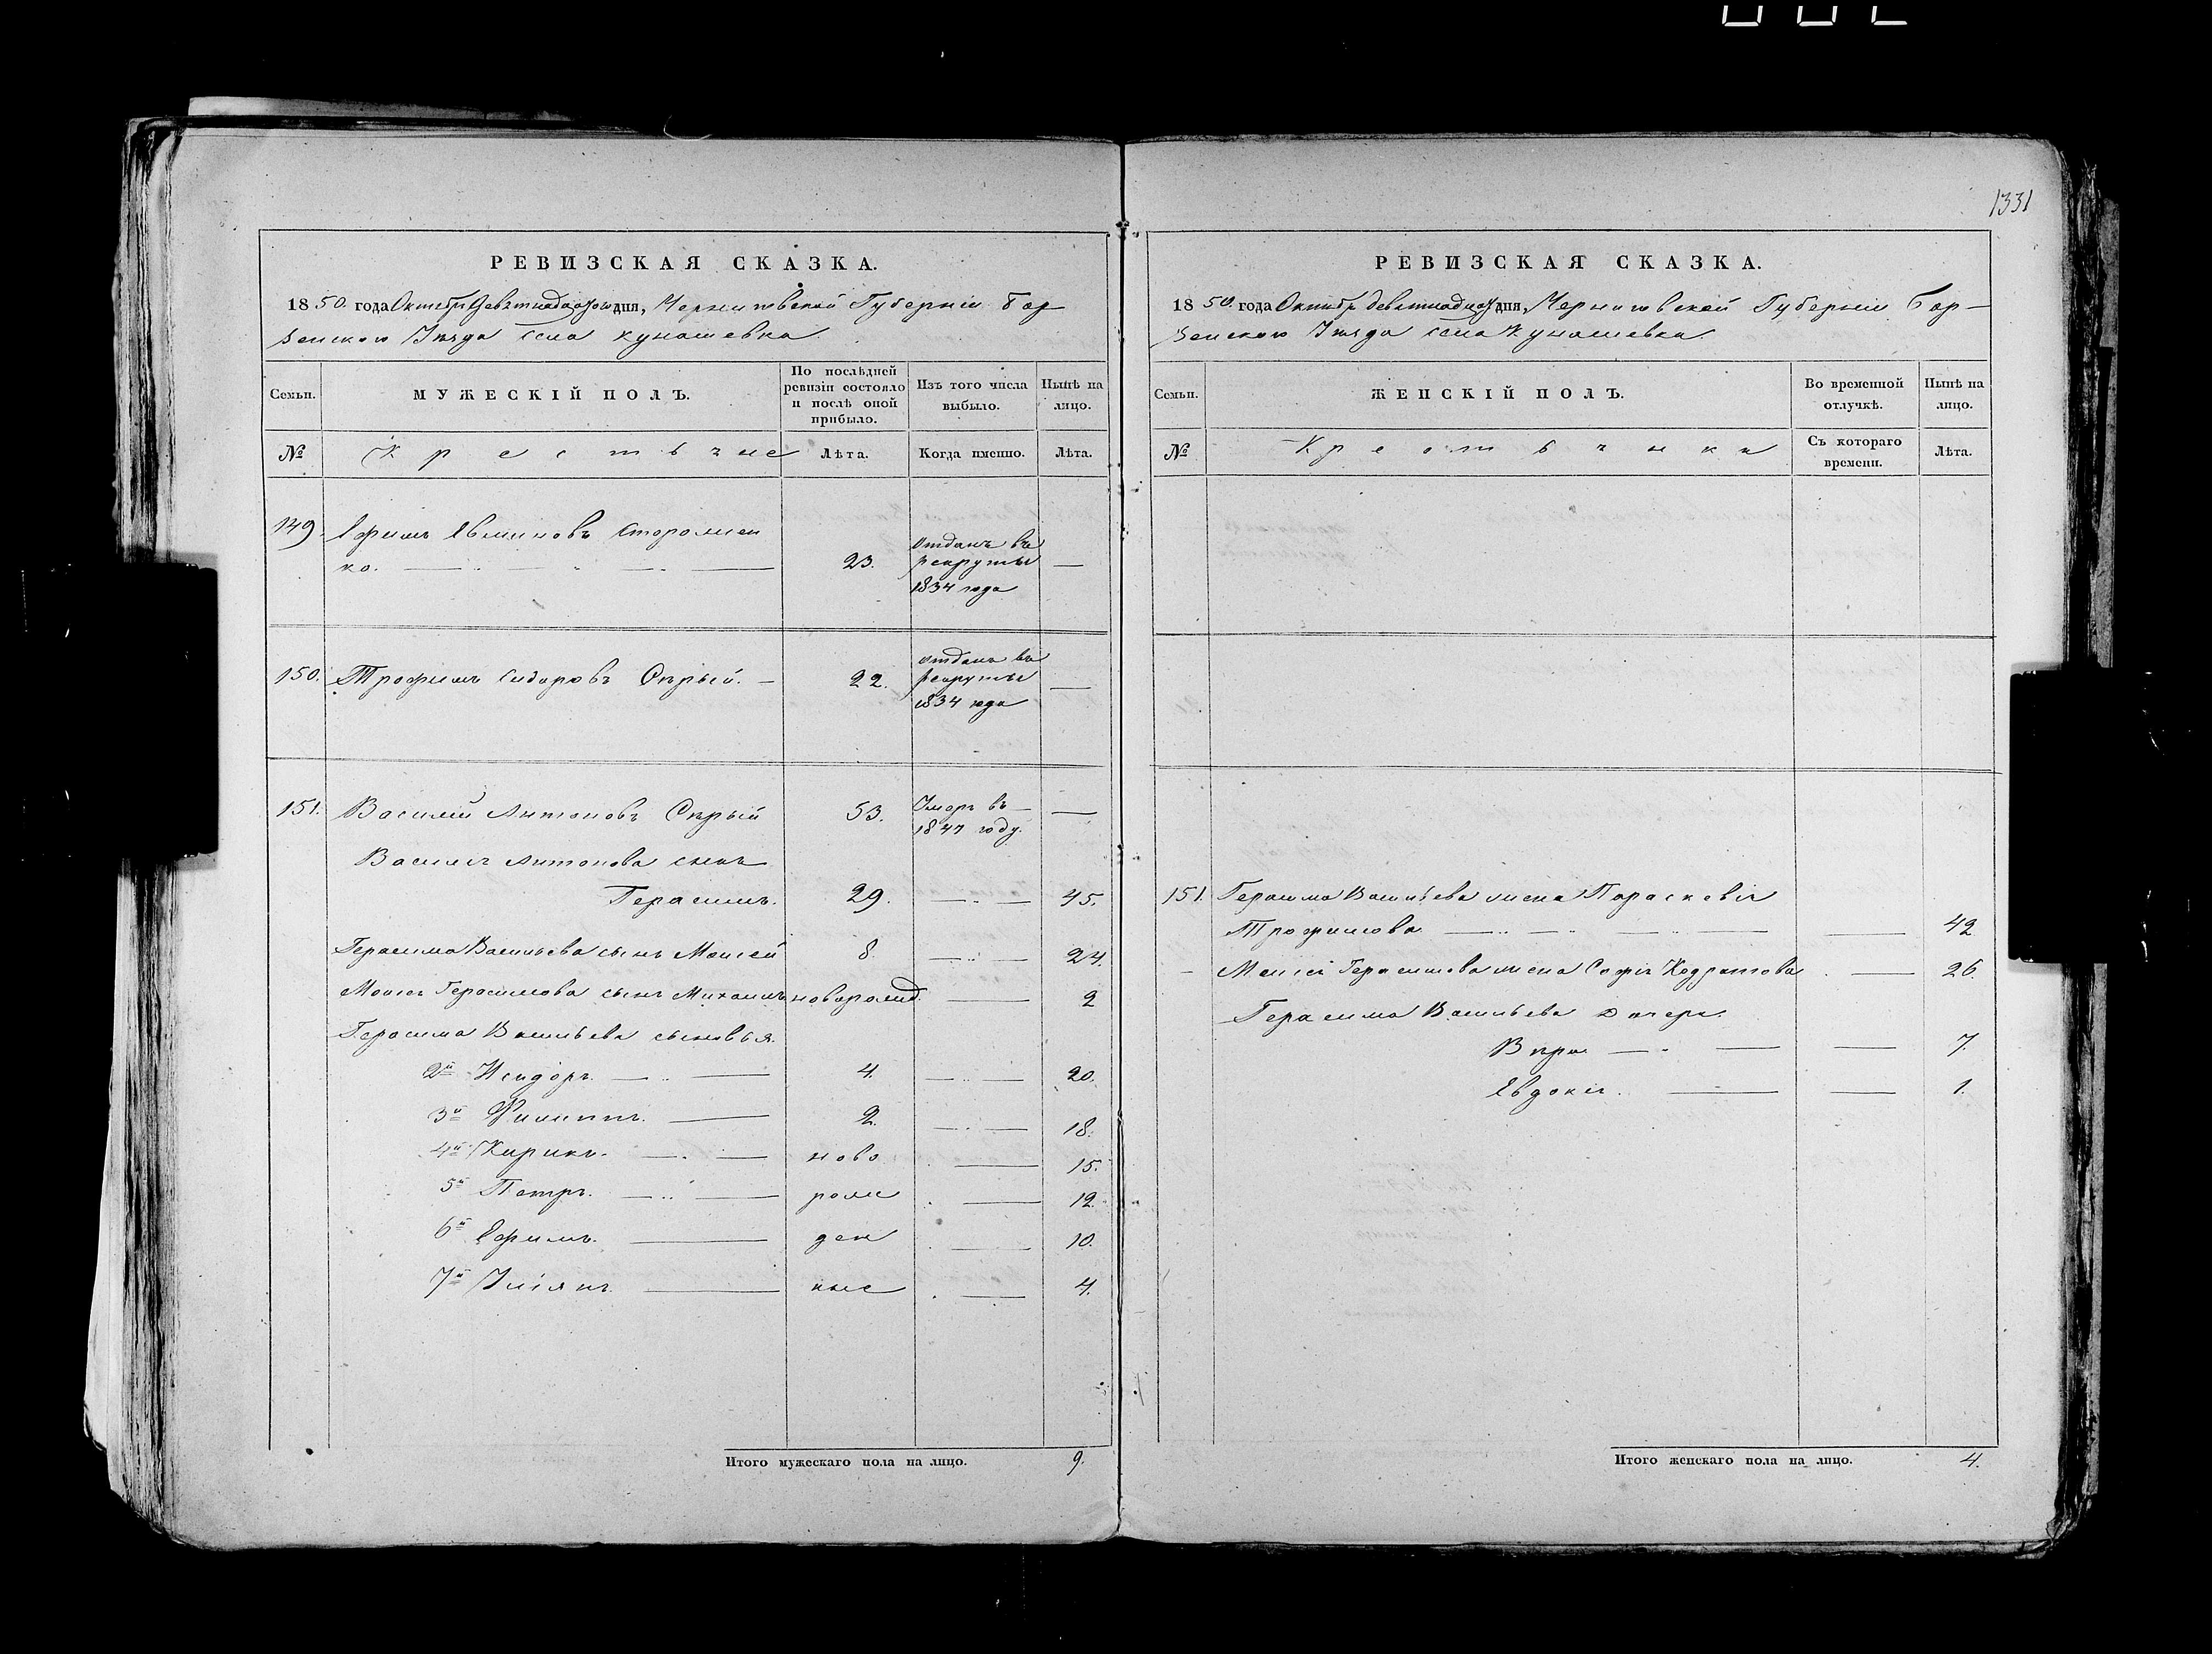 1331
РЕВИЗСКАЯ СКАЗКА.
1850. года Октября девятнадцатого дня, Черниговской Губерніи Бор
зенского Уѣзда села Кунашевка.
Семьи.
МУЖЕСКІЙ ПОЛЪ.
По послѣдней ревизіи состояло и послѣ оной прибыло.
Изъ того числа выбыло.
Нынѣ на лицо.
№
Крестьяне
Лѣта.
Когда именно.
Лѣта.
149. Ефимъ Евминовъ Сторожен
ко. 23. отданъ въ рекруты 1834 года —
150. Трофимъ Сидоровъ Сѣрый. — 22. отданъ въ рекруты 1834 года —
151. Василий Антоновъ Сѣрый 53. Умеръ въ 1847 году. —
Василия Антонова сынъ
Герасимъ. 29. — 45.
Герасима Васильева сынъ Моисей 8. — 24.
Моисея Герасимова сынъ Михаилъ новорожд. — 2
Герасима Васильева сыновья.
2й Исидоръ. 4. — 20.
3й Филиппъ. 2. — 18.
4й Кирикъ. ново — 15.
5й Петръ. рож — 12.
6й Ефимъ. ден — 10.
7й Уліянъ. ные — 4.
Итого мужескаго пола на лицо. 9.
РЕВИЗСКАЯ СКАЗКА.
1850. года Октября девятнадцат дня, Черниговской Губерніи Бор—
зенского Уѣзда села Кунашевка.
Семьи.
ЖЕНСКІЙ ПОЛЪ.
Во временной отлучкѣ.
Нынѣ на лицо.
№
Крестьянки
Съ котораго времени.
Лѣта.
151. Герасима Васильева жена Парасковія
Трофимова. — 42
— Моисея Герасимова жена Софія Кодратова — 26.
Герасима Васильева дочери.
Вѣра — 7.
Евдокія. — 1.
Итого женскаго пола на лицо. 4.